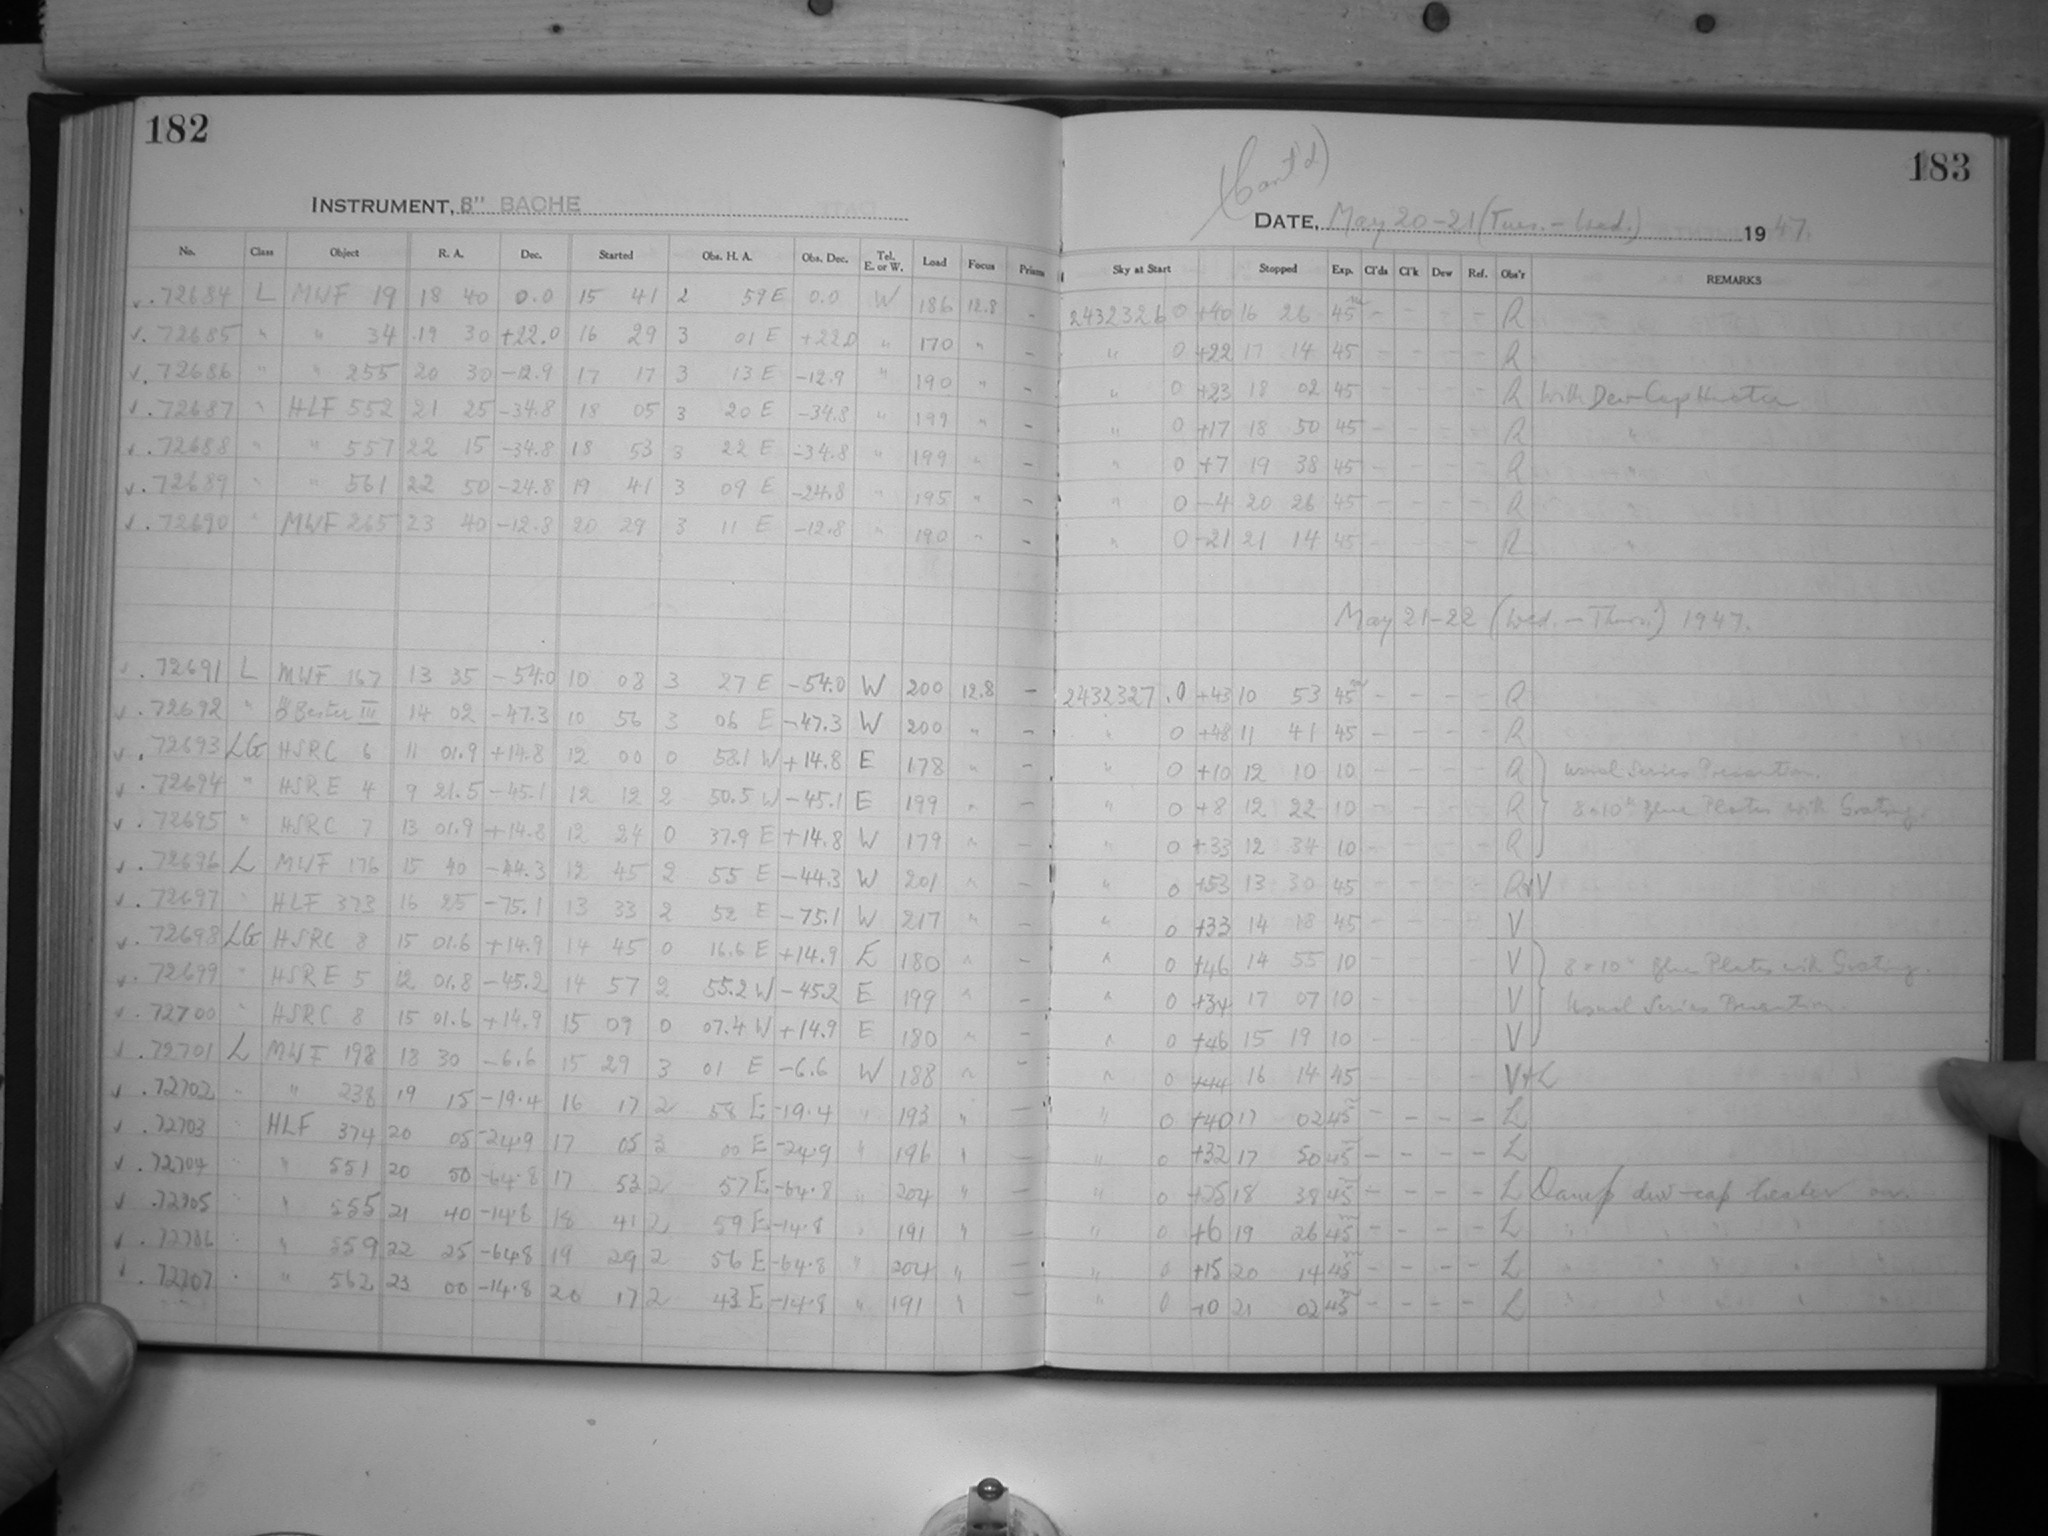 182
INSTRUMENT, 8" BACHE
No. Class Object R. A. Dec. Started Obs. H. A. Obs. Dec. Tel. E. or W. Load Focus Prism
.72684 L MWF 19 18 40 0.0 15 41 2 59 E 0.0 W 186 12.8 –
.72685 " " 34 19 30 +22.0 16 29 3 01 E +22.0 " 170 " –
.72686 " " 255 20 30 -12.9 17 17 3 13 E -12.9 " 190 " –
.72687 " HLF 552 21 25 -34.8 18 05 3 20 E -34.8 " 199 " –
.72688 " " 557 22 15 -34.8 18 53 3 22 E -34.8 " 199 " –
.72689 " " 561 22 50 -24.8 19 41 3 09 E -24.8 " 195 " –
.72690 " MWF 265 23 40 -12.8 20 29 3 11 E -12.8 " 190 " –
.72691 L MWF 167 13 35 -54.0 10 08 3 27 E -54.0 W 200 12.8 –
.72692 " Bester III 14 02 -47.3 10 56 3 06 E -47.3 W 200 " –
.72693 LG HSRC 6 11 01.9 +14.8 12 00 0 58.1 W +14.8 E 178 " –
.72694 " HSRE 4 9 21.5 -45.1 12 12 2 50.5 W -45.1 E 199 " –
.72695 " HSRC 7 13 01.9 +14.8 12 24 0 37.9 E +14.8 W 179 " –
.72696 L MWF 176 15 40 -44.3 12 45 2 55 E -44.3 W 201 " –
.72697 " HLF 373 16 25 -75.1 13 33 2 52 E -75.1 W 217 " –
.72698 LG HSRC 8 15 01.6 +14.9 14 45 0 16.6 E +14.9 E 180 " –
.72699 " HSRE 5 12 01.8 -45.2 14 57 2 55.2 W -45.2 E 199 " –
.72700 " HSRC 8 15 01.6 +14.9 15 09 0 07.4 W +14.9 E 180 " –
.72701 L MWF 198 18 30 -6.6 15 29 3 01 E -6.6 W 188 " –
.72702 " " 238 19 15 -19.4 16 17 2 58 E -19.4 " 193 " –
.72703 " HLF 374 20 05 -24.9 17 05 3 00 E -24.9 " 196 " –
.72704 " " 551 20 50 -64.8 17 53 2 57 E -64.8 " 204 " –
.72705 " " 555 21 40 -14.8 18 41 2 59 E -14.8 " 191 " –
.72706 " " 559 22 25 -64.8 19 29 2 56 E -64.8 " 204 " –
.72707 " " 562 23 00 -14.8 20 17 2 43 E -14.8 " 191 " –
183
(Cont'd)
DATE, May 20-21 (Tues. - Wed.) 1947.
Sky at Start Stopped Exp. Cl'ds Cl'k Dew Ref. Obs'r REMARKS
2432326 0 +40 16 26 45 – – – – R
" 0 +22 17 14 45 – – – – R
" 0 +23 18 02 45 – – – – R With Dew Cap Heater
" 0 +17 18 50 45 – – – – R "
" 0 +7 19 38 45 – – – – R "
" 0 -4 20 26 45 – – – – R "
" 0 -21 21 14 45 – – – – R "
May 21-22 (Wed. - Thurs.) 1947.
2432327 .0 +43 10 53 45 – – – – R
" 0 +48 11 41 45 – – – – R
" 0 +10 12 10 10 – – – – R Usual Series Precaution.
" 0 +8 12 22 10 – – – – R 8×10" Plates with Grating.
" 0 +33 12 34 10 – – – – R
" 0 +53 13 30 45 – – – – R+V
" 0 +33 14 18 45 – – – – V
" 0 +46 14 55 10 – – – – V 8×10" Plates with Grating.
" 0 +34 17 07 10 – – – – V Usual Series Precaution.
" 0 +46 15 19 10 – – – – V
" 0 +44 16 14 45 – – – – V+L
" 0 +40 17 02 45 – – – – L
" 0 +32 17 50 45 – – – – L
" 0 18 38 45 – – – – L Damp dew-cap heater on.
" 0 +6 19 26 45 – – – – L " " " "
" 0 +15 20 14 45 – – – – L " " " "
" 0 +0 21 02 45 – – – – L " " " "